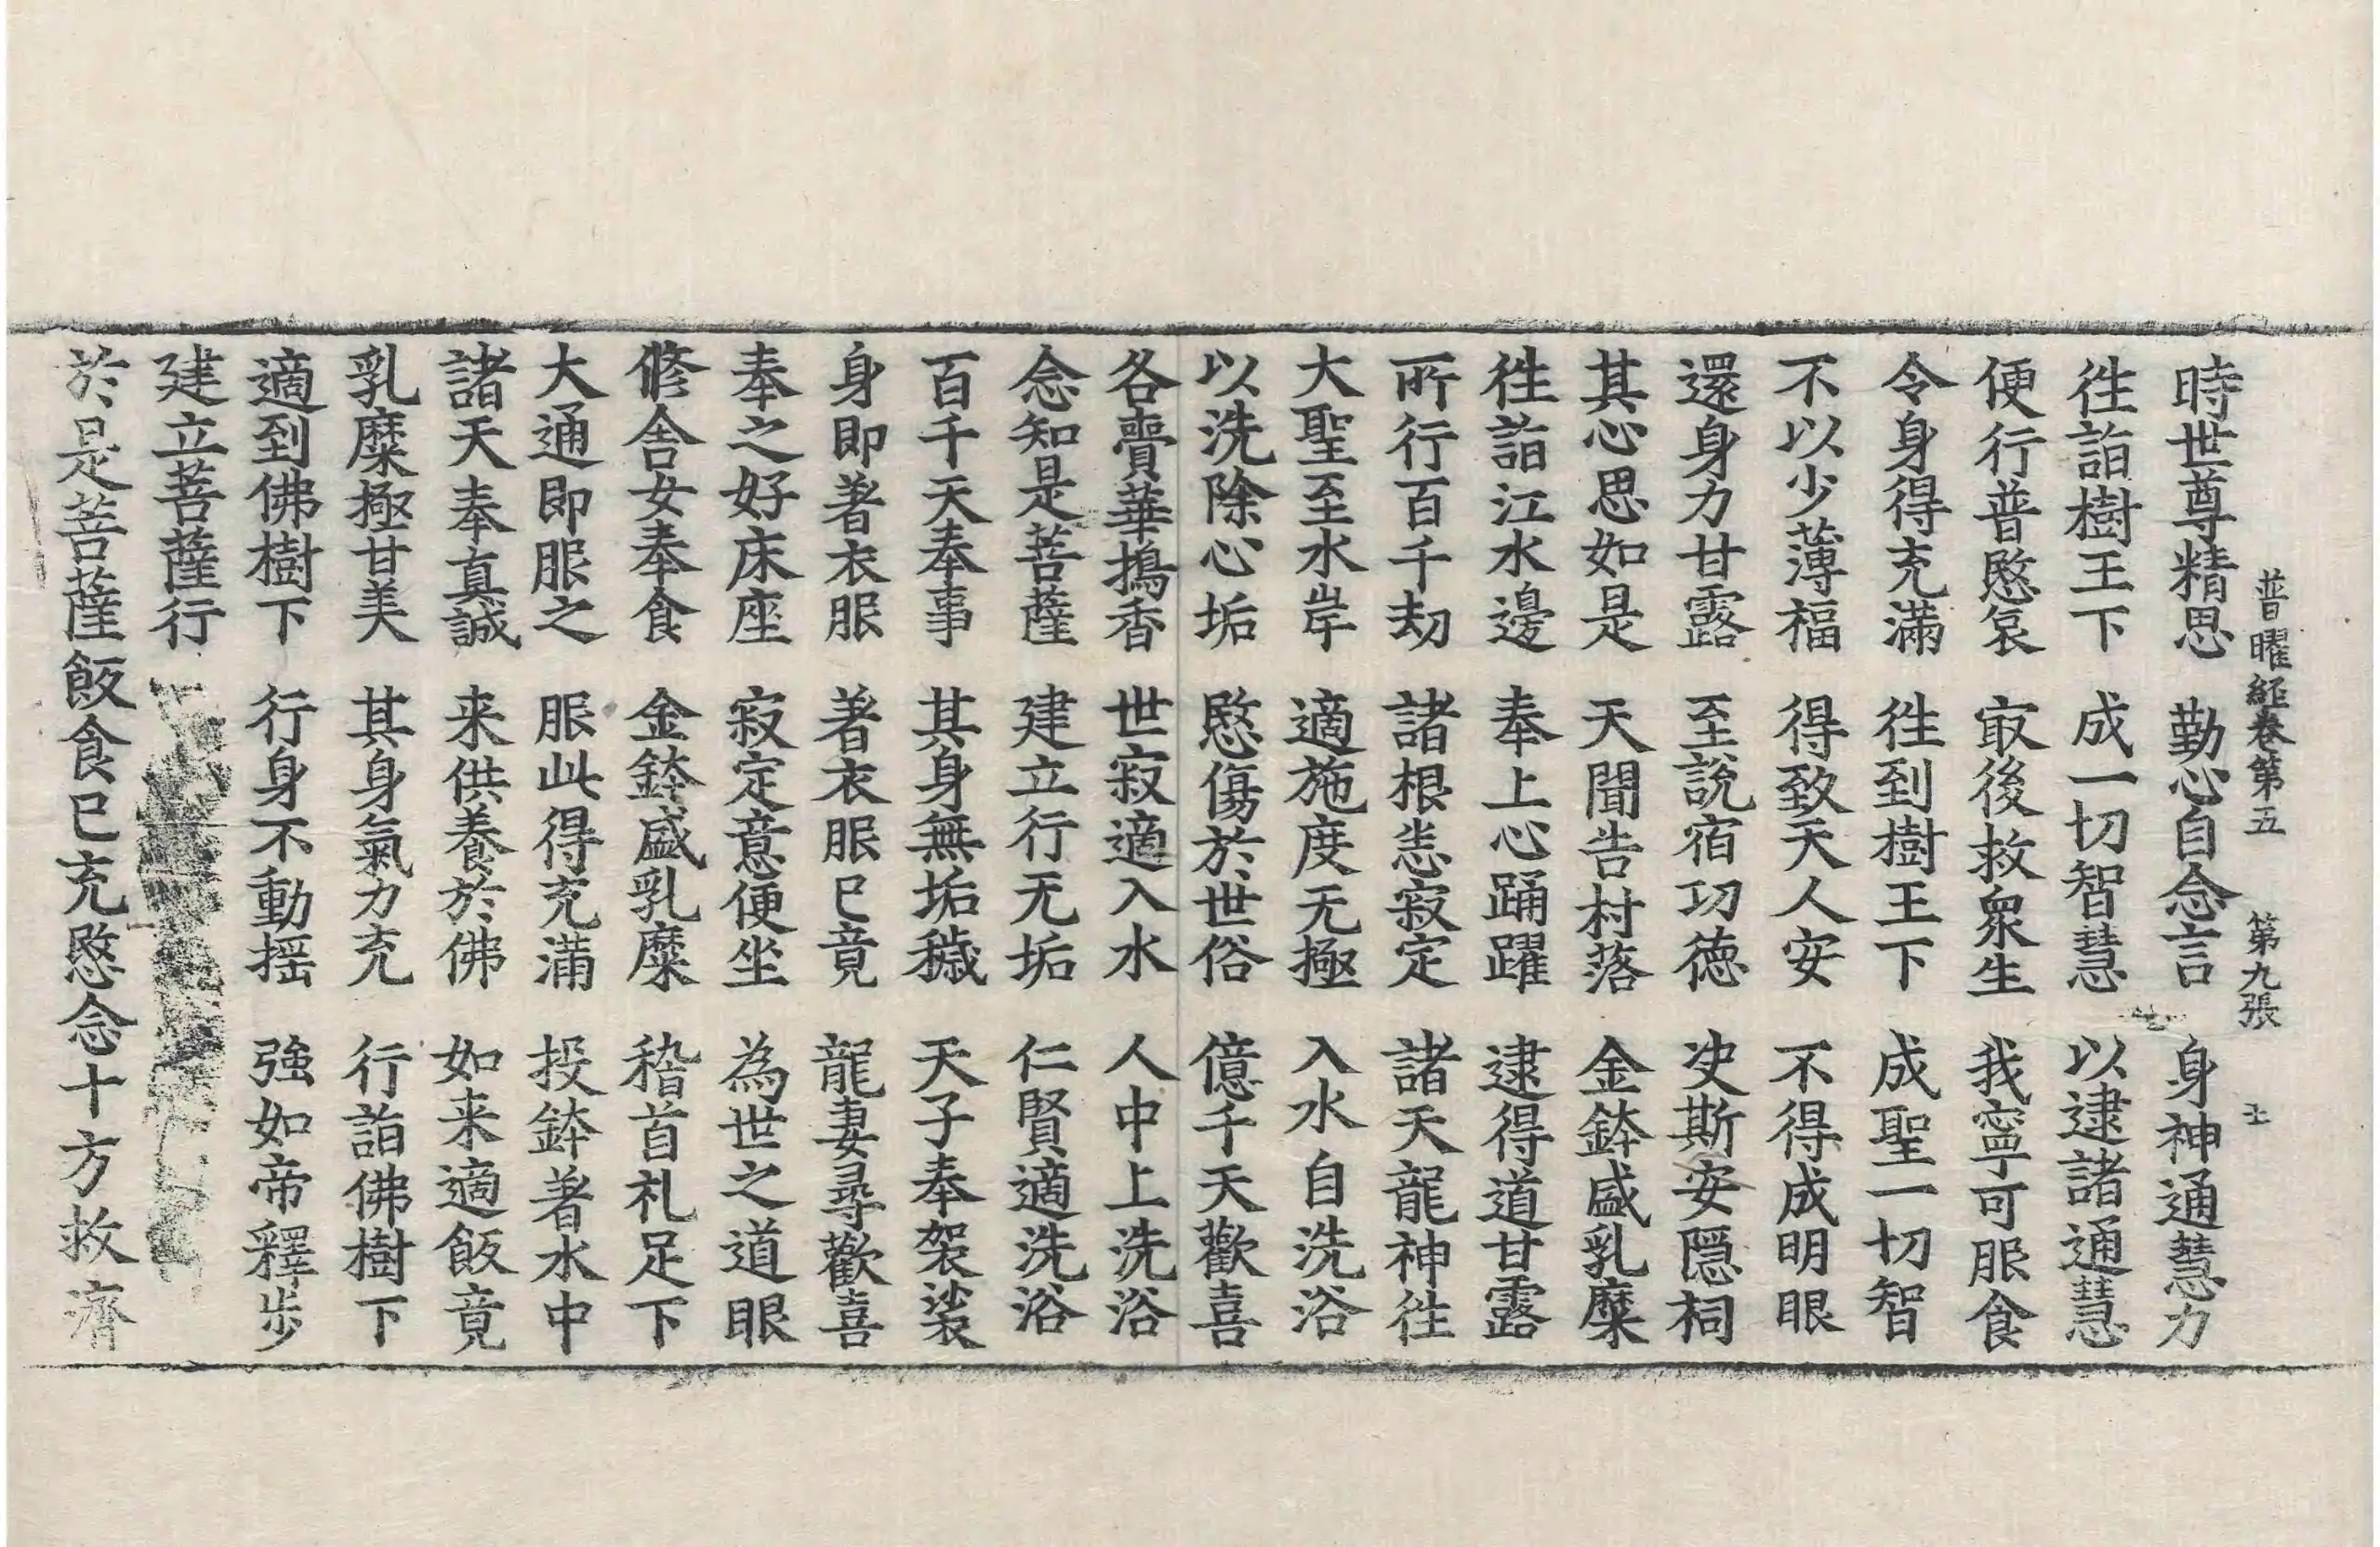 時世尊精思　勤心自念言　身神通慧力
普曜經卷第五　第九張　𡈼
往詣樹王下　成一切智慧　以逮諸通慧
便行普愍哀　㝡後救衆生　我寧可服食
令身得充滿　往到樹王下　成聖一切智
不以少薄福　得致天人安　不得成明眼
還身力甘露　至說宿功德　决斯安隱祠
其心思如是　天聞告村落　金鉢盛乳糜
往詣江水邊　奉上心踊躍　逮得道甘露
所行百千劫　諸根悉寂定　諸天龍神往
大聖至水岸　適施度无極　入水自洗浴
以洗除心垢　愍傷於世俗　億千天歡喜
各賷華擣香　世寂適入水　人中上洗浴
念知是菩薩　建立行无垢　仁賢適洗浴
百千天奉事　其身無垢穢　天子奉袈裟
身即著衣服　著衣服已竟　龍妻尋歡喜
奉之好床座　寂定意便坐　為世之道眼
修舍女奉食　金鉢盛乳糜　稽首礼足下
大通即服之　服此得充滿　投鉢著水中
諸天奉真誠　来供養於佛　如来適飯竟
乳糜極甘美　其身氣力充　行詣佛樹下
適到佛樹下　行身不動搖　強如帝釋步
建立菩薩行
於是菩薩飯食已充愍念十方救濟